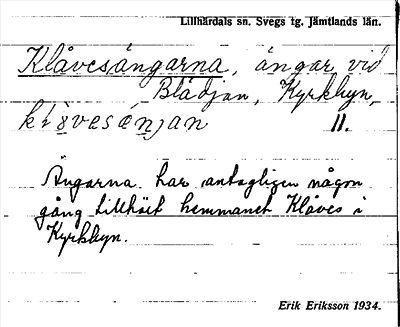 Lillhärdals sn. Svegs tg. Jämtlands län.
Klåvesängarna, ängar vid
Blädjan, Kyrkbyn,
11.
Ängarna har antagligen någon
gång tillhört hemmanet Klåves i
Kyrkbyn.
Erik Eriksson 1934.